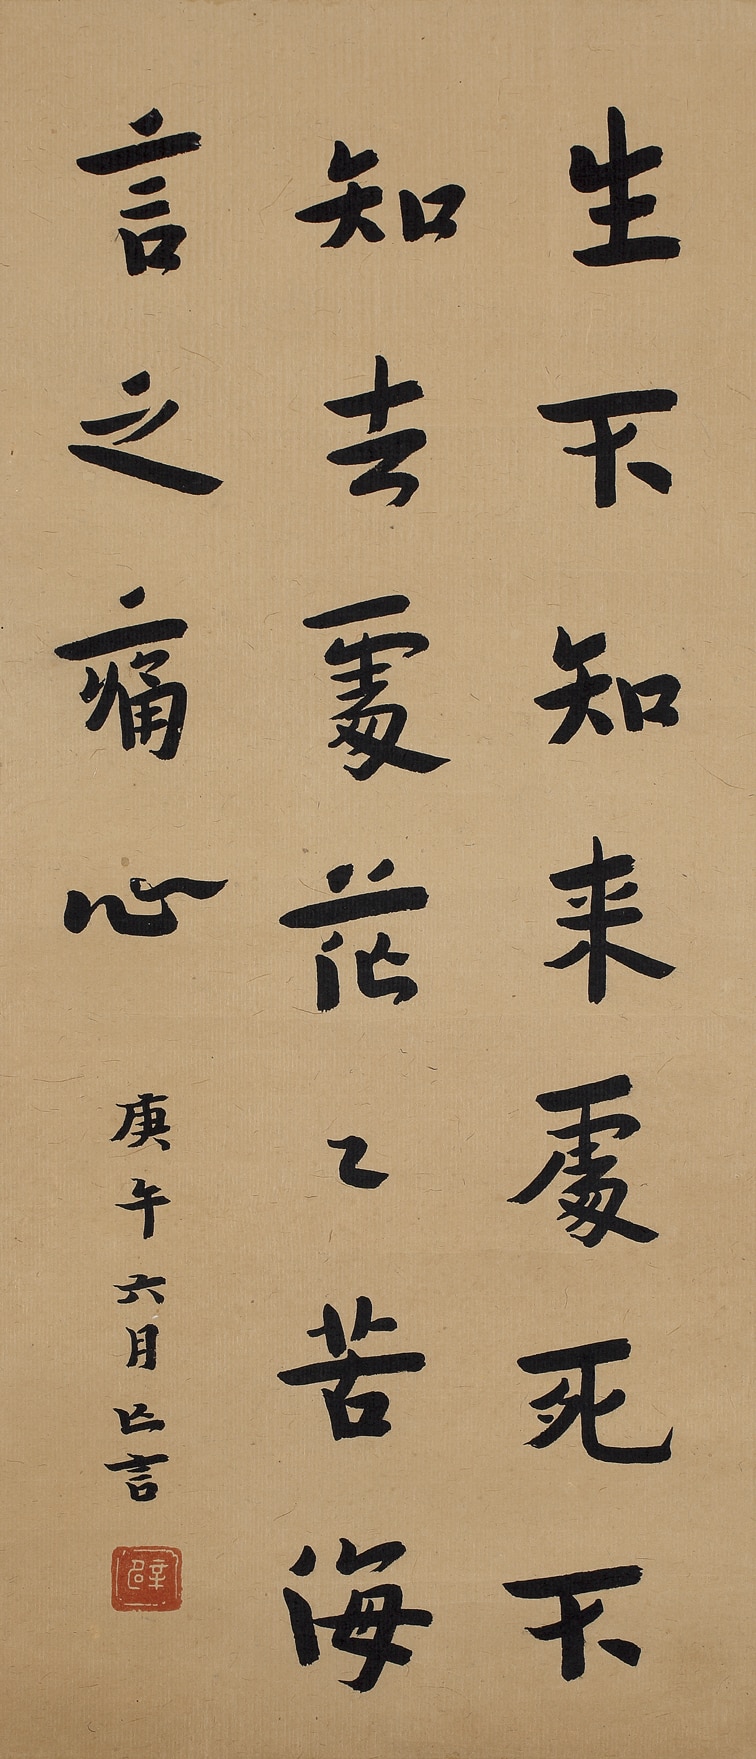 生不知来處死不
知去處茫〻苦海
言之痛心
庚午六月亾言